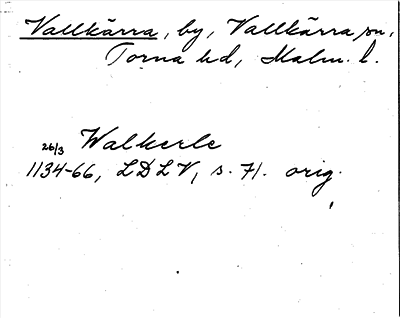 Vallkärra, by, Vallkärra sn,
Torna hd, Malm. l.
26/3 Walkerle
1134-66, LDLV, s. 71. orig.